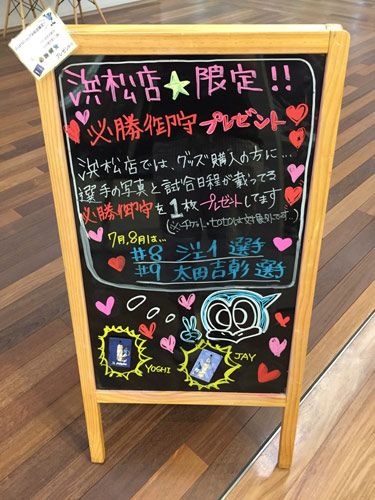 浜松店★限定!!
必勝御守プレゼント
浜松店では、グッズ購入の方に…
選手の写真と試合日程が載ってる
必勝御守を1枚プレゼントしてます
(※チケット・totoは対象外です…)
7月,8月は…
#8 ジェイ 選手
#9 太田吉彰 選手
YOSHI
JAY
プレゼント!